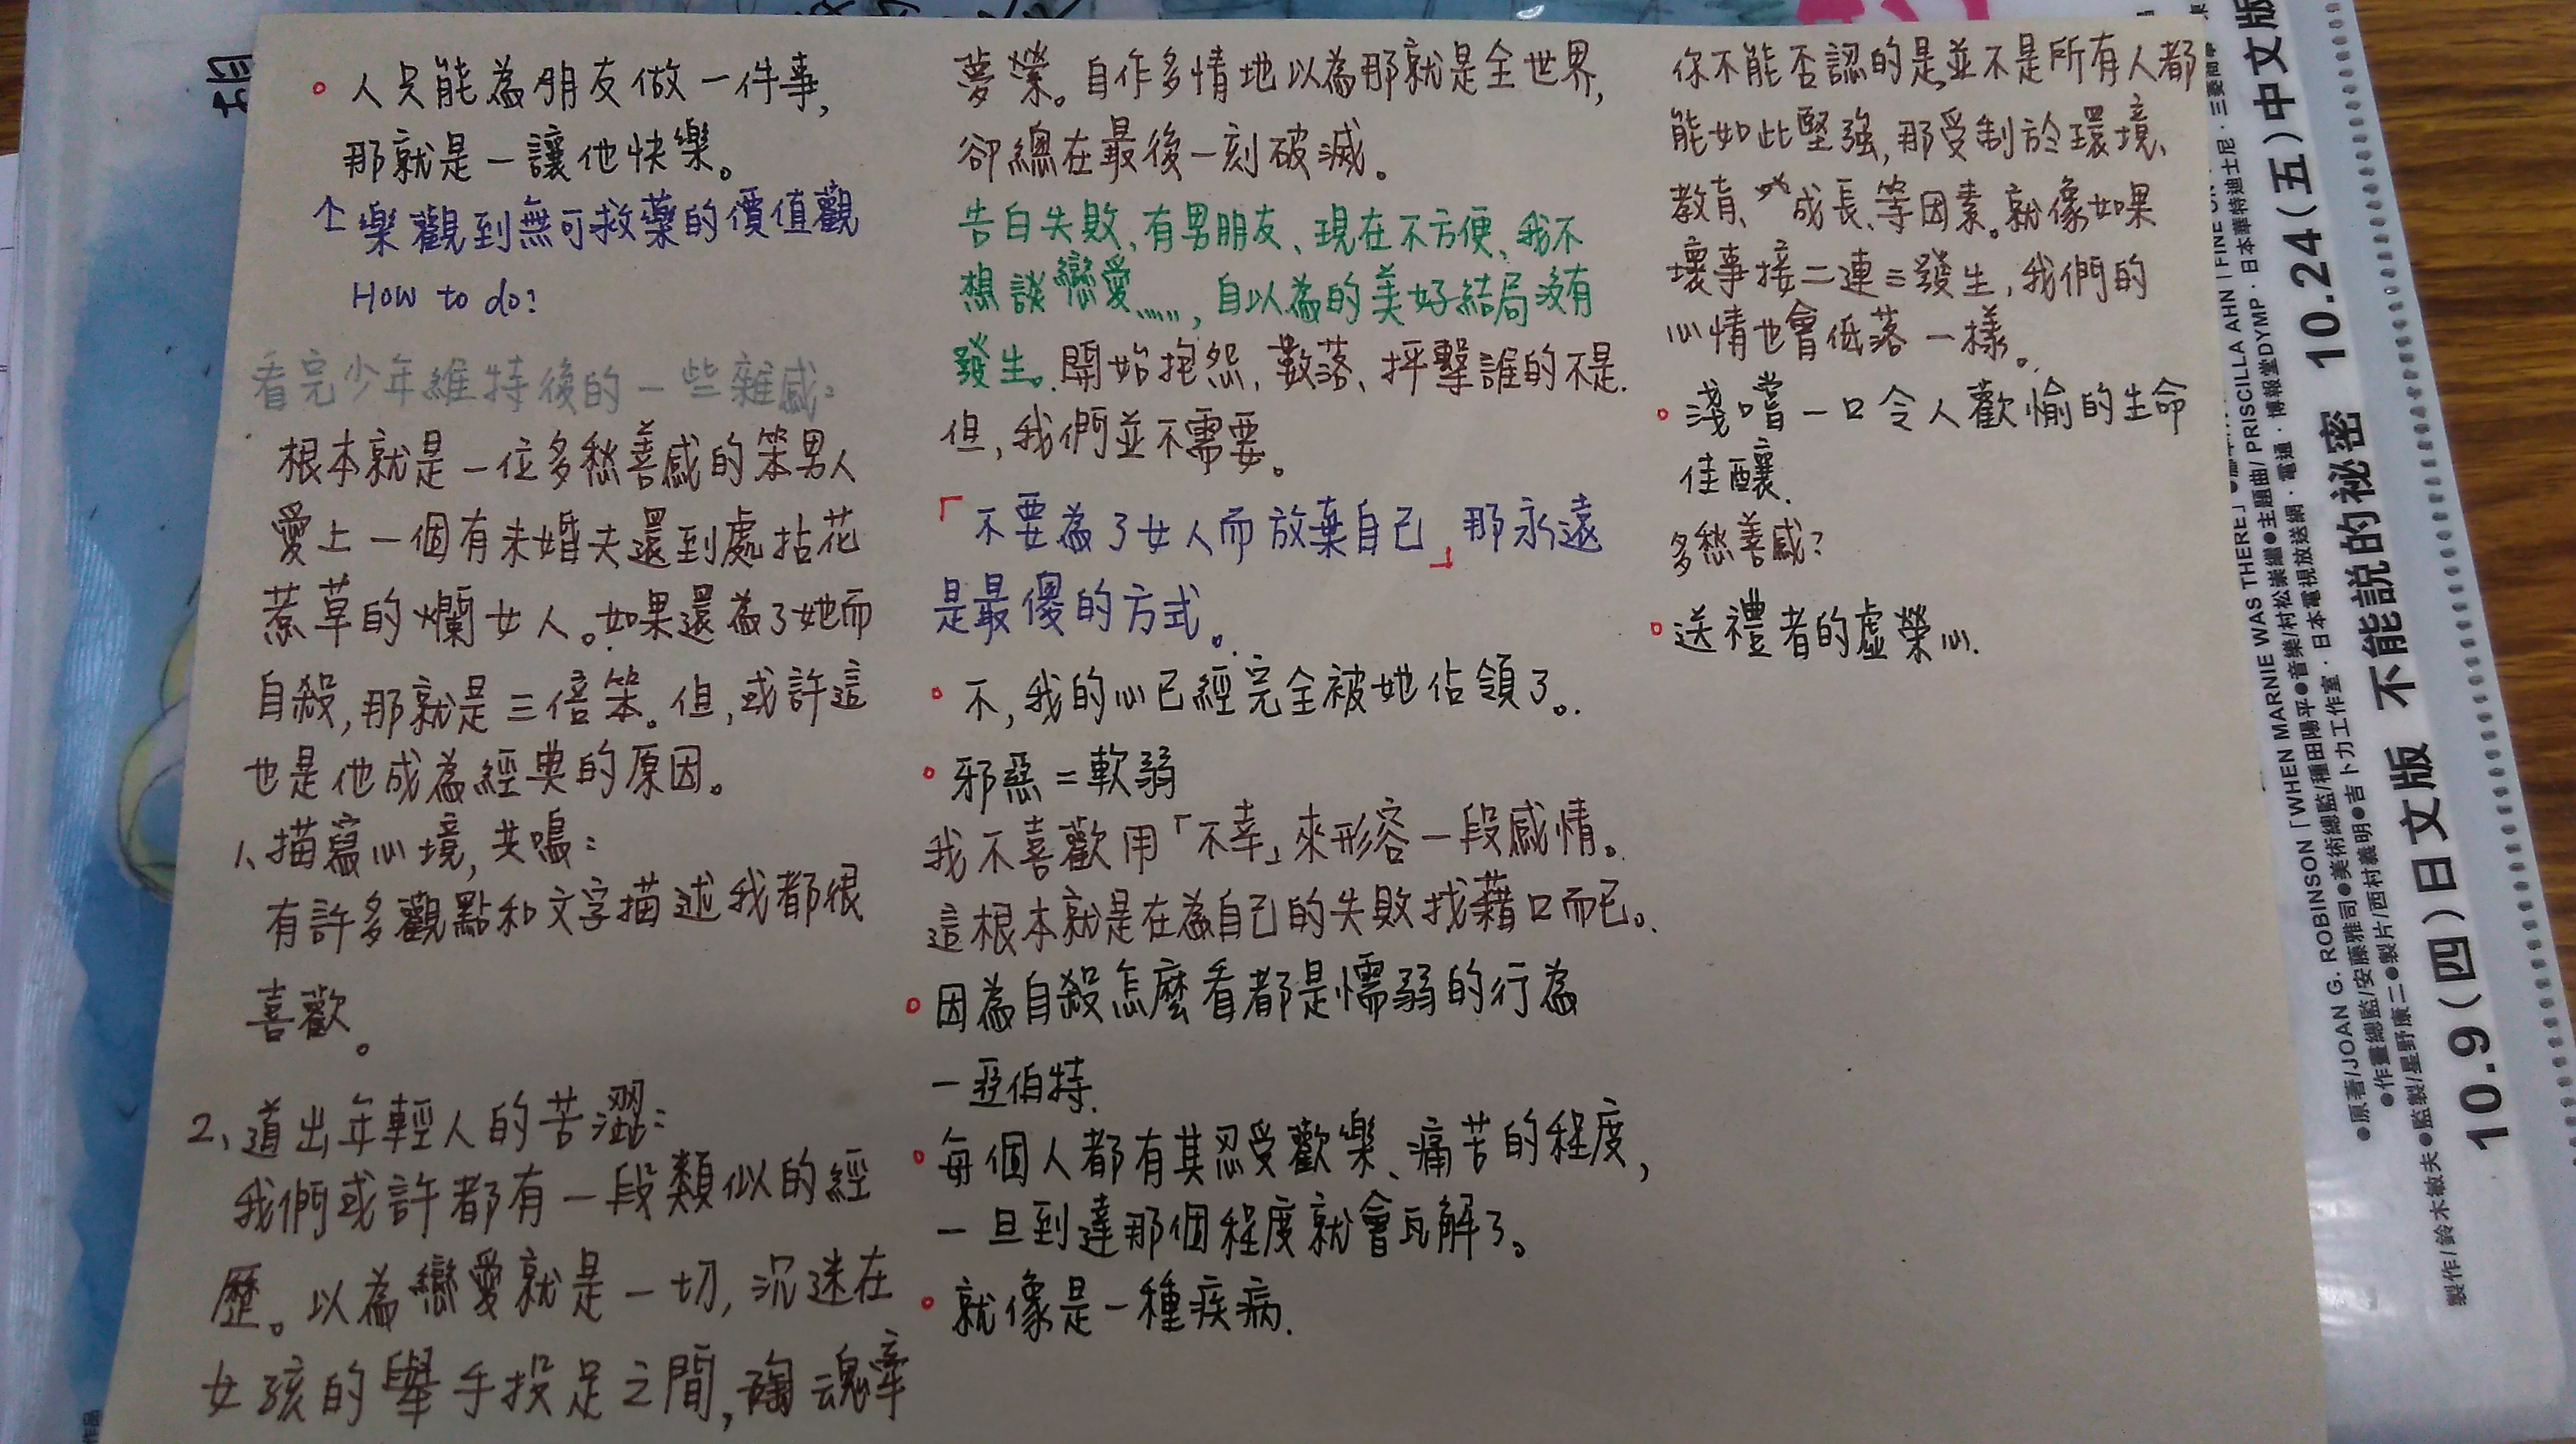 • 人只能為朋友做一件事,
那就是—讓他快樂。
↑樂觀到無可救藥的價值觀
How to do?
看完少年維特後的一些雜感:
根本就是一位多愁善感的笨男人
愛上一個有未婚夫還到處拈花
惹草的爛女人。如果還為了她而
自殺,那就是三倍笨。但,或許這
也是他成為經典的原因。
1、描寫心境,共鳴:
有許多觀點和文字描述我都很
喜歡。
2、道出年輕人的苦澀:
我們或許都有一段類似的經
歷。以為戀愛就是一切,沉迷在
女孩的舉手投足之間,魂牽
夢縈。自作多情地以為那就是全世界,
卻總在最後一刻破滅。
告白失敗、有男朋友、現在不方便、我不
想談戀愛......,自以為的美好結局沒有
發生。開始抱怨,數落、抨擊誰的不是.
但,我們並不需要。
「不要為了女人而放棄自己」那永遠
是最傻的方式。
• 不,我的心已經完全被她佔領了。
• 邪惡=軟弱
我不喜歡用「不幸」來形容一段感情。
這根本就是在為自己的失敗找藉口而已。
• 因為自殺怎麼看都是懦弱的行為
—亞伯特.
• 每個人都有其忍受歡樂、痛苦的程度,
一旦到達那個程度就會瓦解了。
• 就像是一種疾病.
你不能否認的是,並不是所有人都
能如此堅強,那受制於環境、
教育、成長、等因素。就像如果
壞事接二連三發生,我們的
心情也會低落一樣。
• 淺嚐一口令人歡愉的生命
佳釀.
多愁善感?
• 送禮者的虛榮心.
●原著/JOAN G. ROBINSON「WHEN MARNIE WAS THERE」
●作畫總監/安藤雅司●美術總監/種田陽平●音樂/村松崇繼●主題曲/PRISCILLA AHN「FINE ON
●監製/星野康二●製片/西村義明●吉卜力工作室・日本電視放送網・電通・博報堂DYMP・日本華特迪士尼・三菱商事
製作/鈴木敏夫
10.9(四)日文版 不能說的祕密 10.24(五)中文版